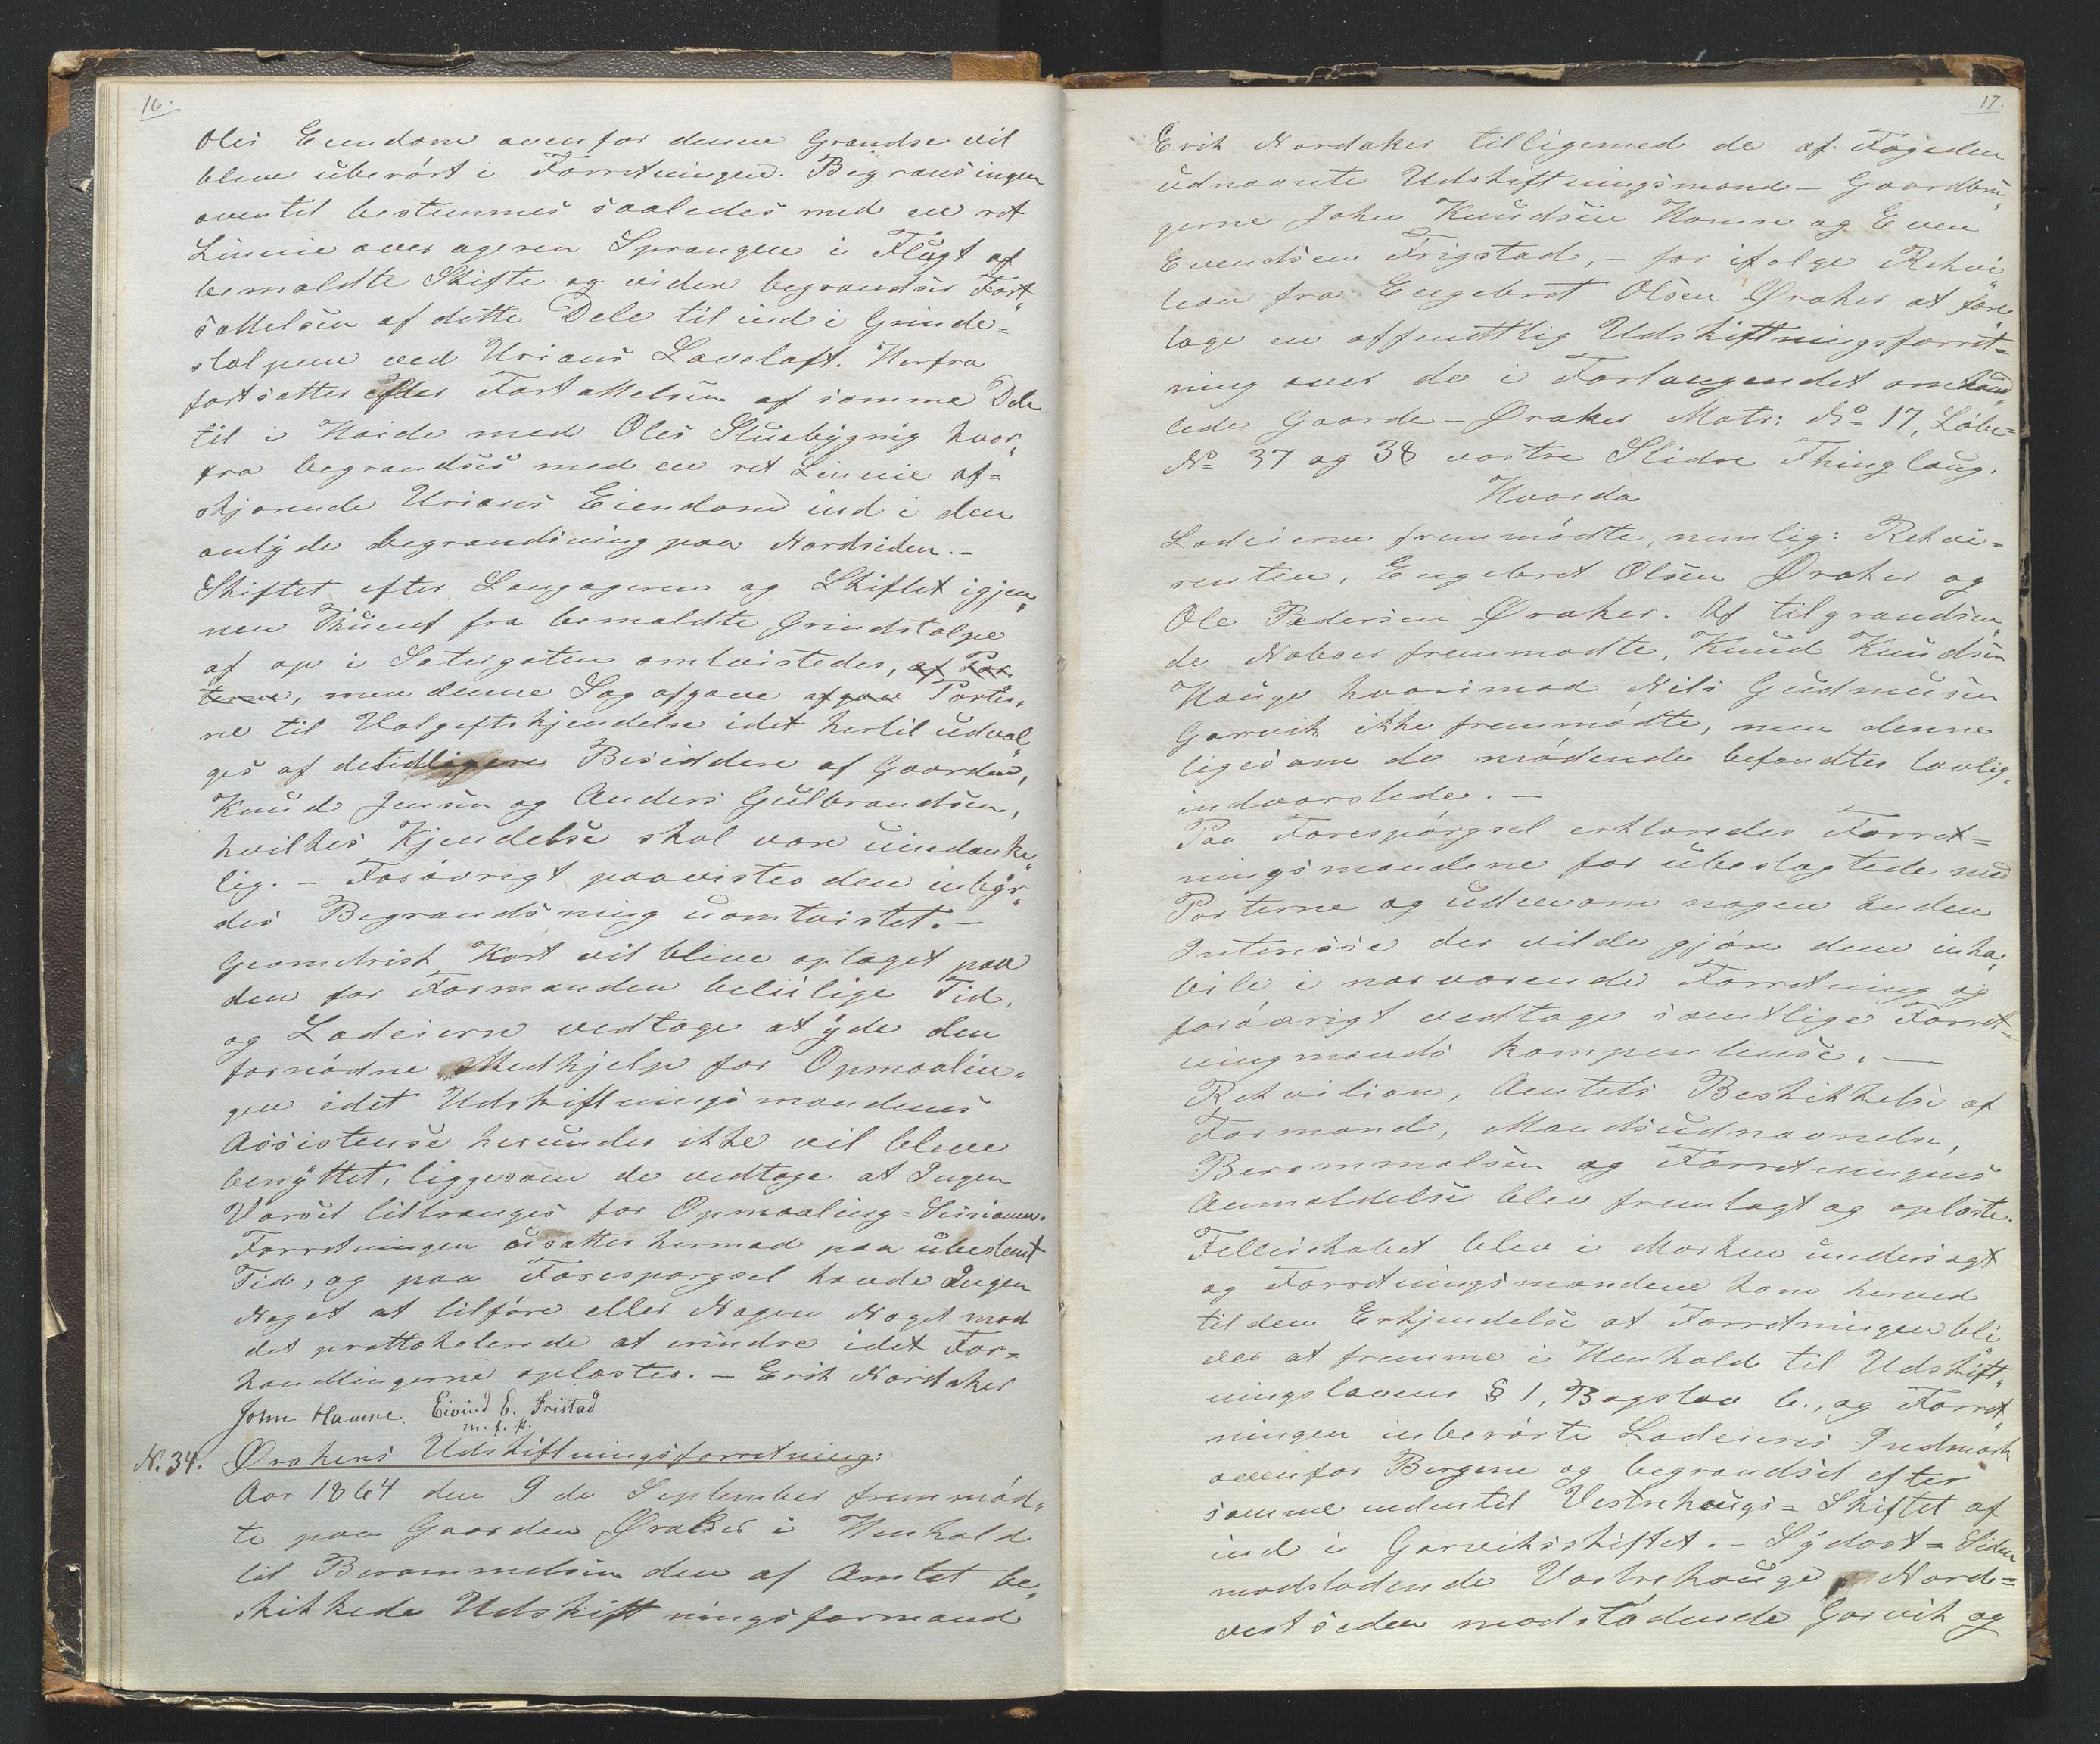 16.
Oles Eendom ovenfor denne Grandse vil
blive uberört i Forretningen. Begransingen
oventil bestemmes saaledes med en ret
Linnie over ageren Sprangen i Flugt af
bemaldte Skifte og viden begrandses Fort„
sattelsen af dette Dele til ind i Grinde=
stolpene ved Urians Laveloft. Herfra
fortsattes efter Fortsattelsen af samme Dele
til i Höide med Oles Stuebygnig hvor„
fra begrandses med en ret Linnie af=
skjarende Urians Eiendom ind i den
anlyde begrandsning paa Nordsiden.–
Skiftet efter Langageren og Skiftet igjen„
nem Thunet fra bemaldte Grindstolpe
af op i Satergaten omtvistedes, af Par
terne, men denne Sag afgave afgav Parter„
ne til Volgiftskjendelse idet hertil udval„
ges af de tidligere Besiddere af Gaarden,
Knud Jensen og Anders Gulbrandsen,
hvilkes Kjendelse skal vare uindanke„
lig. – Forövrigt paavistes den inbyr„
des Begrandsning uomtvistet.–
Geometrisk Kort vil blive optaget paa
den for Formanden beleilige Tid,
og Lodeierne vedtage at yde den
fornödne Medhjelp for Opmaalin„
gen idet Udskiftningsmandenes
Assistense herunder ikke vil bleve
benyttet, liggesom de vedtage at Ingen
Varsel tiltranges for Opmaaling=Sesionen.
Forretningen udsattes hermed paa ubestemt
Tid, og paa Forespørgsel havde Ingen
Noget at tilføre eller Nogen Noget mod
det prottokolerede at erindre idet For=
handlingerne oplastes. – Erik Nordaker
John Hamre. Eivind E. Fristad
m. f. p.
N. 34. Ørakers Udskiftningsforretning:
Aar 1864 den 9 de September fremmöd„
te paa Gaarden Øraker i Henhold
til Berammelsen den af Amtet be„
skikkede Udskiftningsformand
17.
Erik Nordaker tilligemed de af Fogeden
udnavnte Udskiftningsmand – Gaardbru„
gerne John Knudsen Hamre og Even
Evendsen Frigstad, – for ifølge Rekvi„
tion fra Engebret Olsen Øraker at fore„
tage en offenttlig Udskiftningsforret=
ning over de i Forlangendet omhand„
lede Gaarde – Øraker Matr: No 17, Löbe=
No 37 og 38 vestre Slidre Thinglaug.
Hvorda
Lodeierne fremmödte, nemlig: Rekvi=
renten, Engebret Olsen Øraker og
Ole Pedersen Øraker. Af tilgrandsen„
de Naboer fremmödte, Knud Knudsen
Hauge hvorimod Nils Gudmusen
Garvik ikke fremmödte, men denne
ligesom de mödende befandtes lovlig„
indvarslede. –
Paa Forespörgsel erklaredes Forret=
ningsmandene for ubeslagtede med
Parterne og uden om nogen anden
Interesse der vilde gjöre dem inha„
bile i narvarende Forretning og
forövrigt vedtage samtlige Forret=
ningmands kompentense. –
Rekvition, Amtets Beskikkelse af
Formand, Mandsudnavnelse,
Berammelsen og Forretningens
Anmaldelse blev fremlagt og oplaste.
Fellesskabet blev i Marken undersøgt
og Forretningsmandene kom herved
til den Erkjendelse at Forretningen bli„
ver at fremme i Henhold til Udskift„
ningslovens § 1, Bogstav b., og Forret„
ningen inberörte Lodeieres Indmark
ovenfor Bergene og begrandset efter
samme nedentil Vestrehaugs=Skiftet af
ind i Garviksskiftet. – Sydost=Siden
modstödende Vestrehauge, Nord=
vestsiden modstödende Garvik og